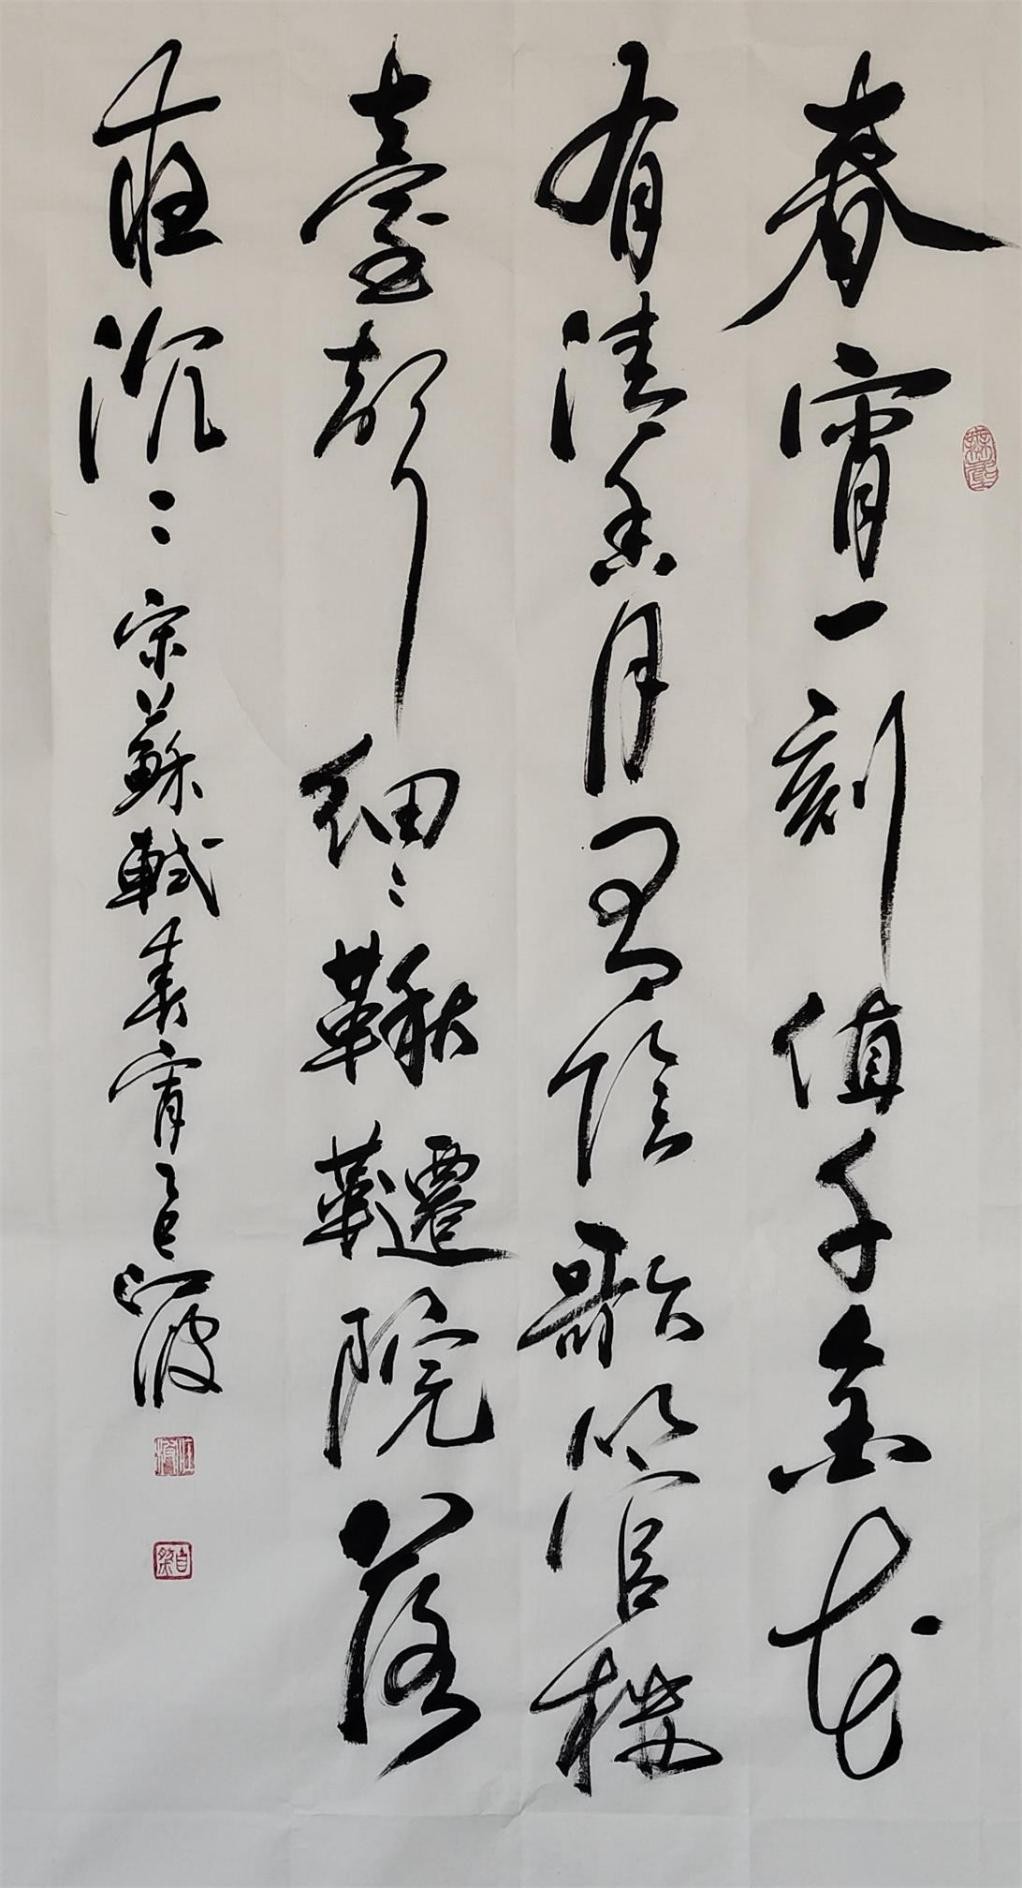 春宵一刻值千金花
有清香月有陰歌管樓
臺聲細〻鞦韆院落
夜沉〻宋蘇軾春宵乙巳江波